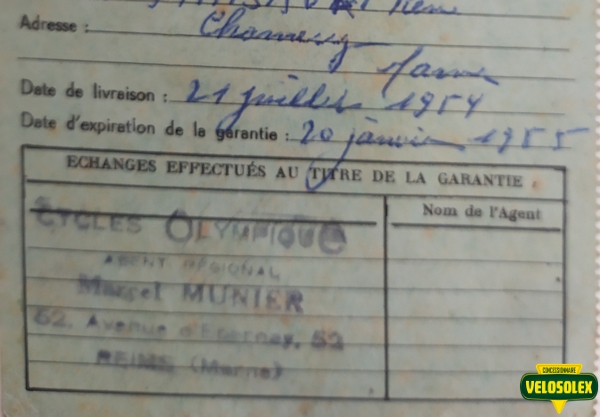 René
Adresse : Chamery
Marne
Date de livraison : 21 juillet 1954
Date d'expiration de la garantie : 20 janvier 1955
ECHANGES EFFECTUÉS AU TITRE DE LA GARANTIE
Nom de l'Agent
CYCLES OLYMPIQUE
AGENT RÉGIONAL
Marcel MUNIER
52, Avenue d'Epernay, 52
REIMS (Marne)
CONCESSIONNAIRE
VELOSOLEX